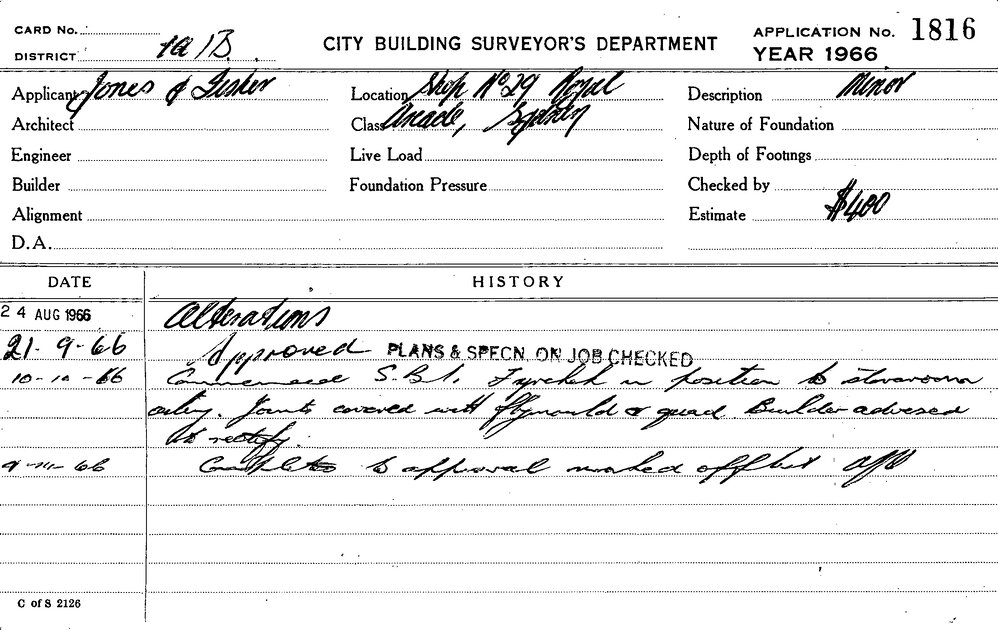 CARD No.
DISTRICT 1B
CITY BUILDING SURVEYOR'S DEPARTMENT
APPLICATION No. 1816
YEAR 1966
Applicant Jones &
Location Shop No 29 Royal
Description Minor
Architect
Class Arcade, Sydney
Nature of Foundation
Engineer
Live Load
Depth of Footings
Builder
Foundation Pressure
Checked by
Alignment
Estimate $400
D.A.
DATE
HISTORY
24 AUG 1966
Alterations
21-9-66
Approved PLANS & SPECN. ON JOB CHECKED
10-10-66
Commenced in position to storeroom
ceiling. Joints covered with or quad. Builder advised
to rectify.
66
to approval marked off
C of S 2126